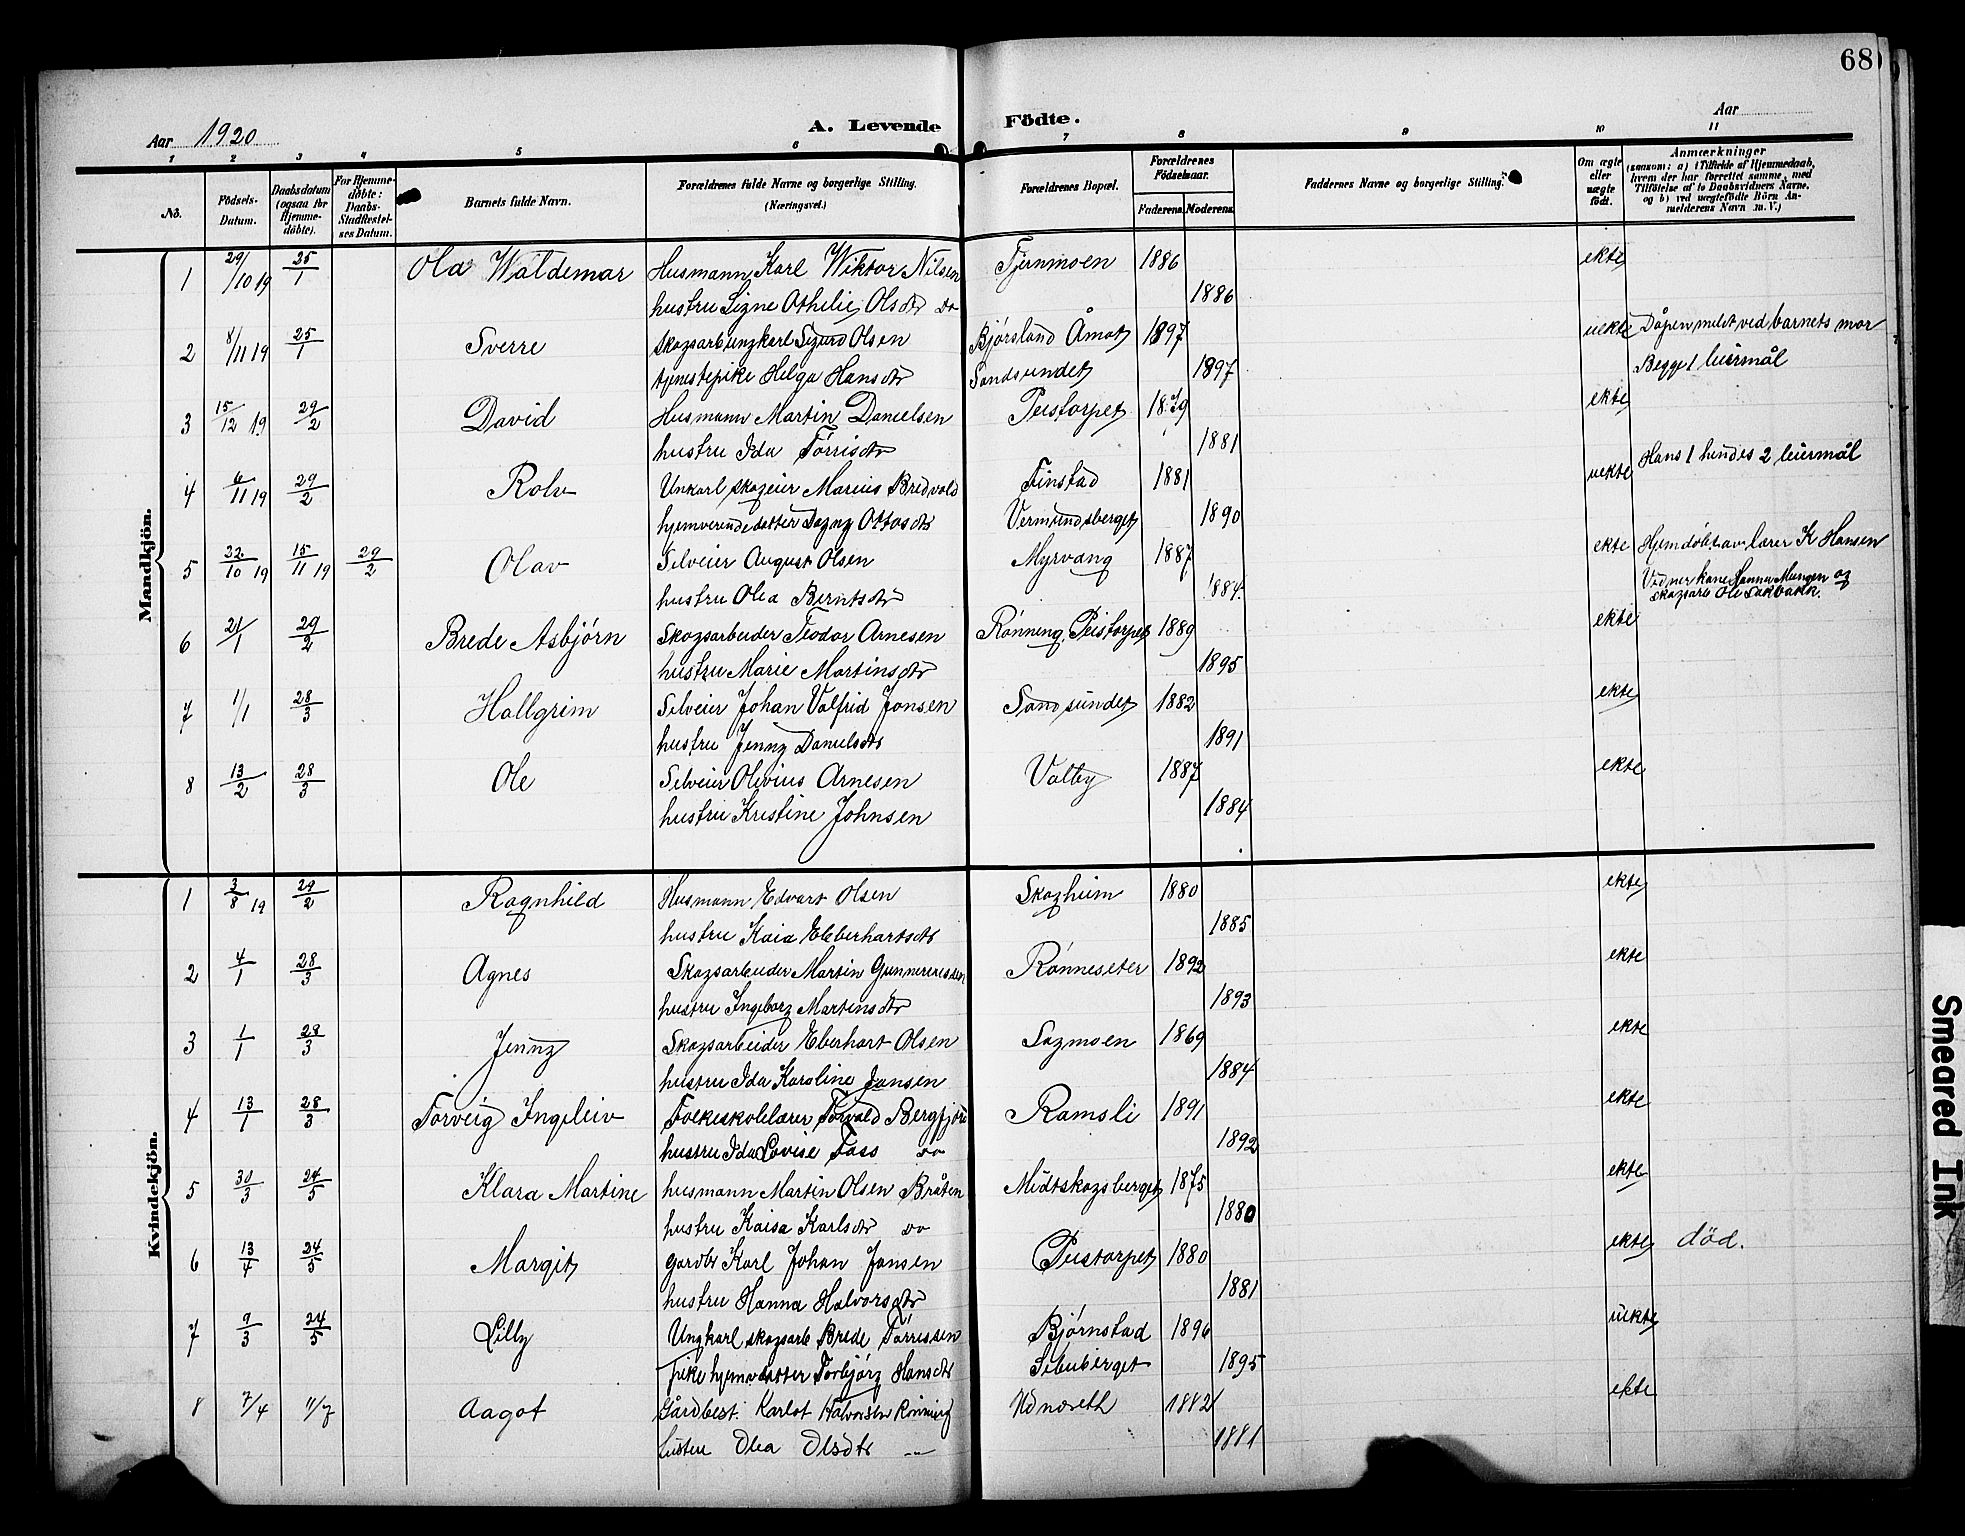 68
Aar 1920
A. Levende Födte.
Aar
1 2 3 4 5 6 7 8 9 10 11
No.
Födsels-Datum.
Daabsdatum (ogsaa for Hjemme-döbte).
For Hjemme-döbte: Daabs-Stadfestel-ses Datum.
Barnets fulde Navn.
Forældrenes fulde Navne og borgerlige Stilling. (Næringsvei.)
Forældrenes Bopæl.
Forældrenes Födselsaar.
Faderens. Moderens.
Faddernes Navne og borgerlige Stilling.
Om ægte eller uægte födt.
Anmærkninger
(saasom: a) i Tilfælde af Hjemmedaab, hvem der har forrettet samme, med Tilföielse af to Daabsvidners Navne, og b) ved uægtefödte Börn An-melderens Navn m. V.)
Mandkjön.
1 29/10 19 25/1 Ola Waldemar Husmann Karl Wiktor Nilsen Tjernmoen 1886 ekte
hustru Signe Othelie Olsdtr do 1886
2 8/11 19 25/1 Sverre skogsarb ungkarl Sigurd Olsen Bjørslund Åmot 1897 uekte Dåpen meldt ved barnets mor
tjenestepike Helga Hansdtr Sandsundet 1897 Begge 1 leiermål
3 15/12 19 29/2 David Husmann Martin Danielsen Peistorpet 1879 ekte
hustru Ida Tørrisdtr 1881
4 6/11 19 29/2 Rolv Unkarl skogeier Marius Bredvold Finstad 1881 uekte Hans 1 hendes 2 leiermål
hjemverendedatter Dagny Ottosdtr Vermundsberget 1890
5 22/10 19 15/11 19 29/2 Olav Selveier August Olsen Myrvang 1887 ekte Hjemdøbt av lærer K Hansen
hustru Olea Berntsdtr 1884 Vidner kone Hanna Mungen og
skogsarb Ole
6 21/1 29/2 Brede Asbjørn Skogsarbeider Teodor Arnesen Rønning, Peistorpet 1889 ekte
hustru Marie Martinsdtr 1895
7 1/1 28/3 Hallgrim Selveier Johan Valfrid Jonsen Sandsundet 1882 ekte
hustru Jenny Danielsdtr 1891
8 13/2 28/3 Ole Selveier Olevius Arnesen Valby 1887 ekte
hustru Kristine Johnsen 1884
Kvindekjön.
1 3/8 19 29/2 Ragnhild Husmann Edvart Olsen Skogheim 1880 ekte
hustru Kaia Eberhartsdtr 1885
2 4/1 28/3 Agnes Skogsarbeider Martin Gunnereussen Rønneseter 1892 ekte
hustru Ingeborg Martinsdtr 1893
3 1/1 28/3 Jenny Skogsarbeider Eberhart Olsen Sagmoen 1869 ekte
hustru Ida Karoline Jonsen 1884
4 13/1 28/3 Torveig Ingeleiv Folkeskolelærer Torvald Bergfjord Ramsli 1891 ekte
hustru Ida Lovise Foss do 1892
5 30/3 24/5 Klara Martine husmann Martin Olsen Bråten Midtskogsberget 1875 ekte
hustru Kaisa Karlsdtr do 1880
6 13/4 24/5 Margit gardbr Karl Johan Jonsen Peistorpet 1880 ekte død.
hustru Hanna Halvorsdtr 1881
7 9/3 24/5 Lilly Ungkarl skogsarb Brede Tørrissen Bjørnstad 1896 uekte
pike hjemv datter Torbjørg Hansdtr 1895
8 7/4 11/7 Aagot Gårdbest. Karlot Halvorsen Rønning Ud nereth 1882 ekte
hustru Olea Olsdtr — 1881
Smeared Ink